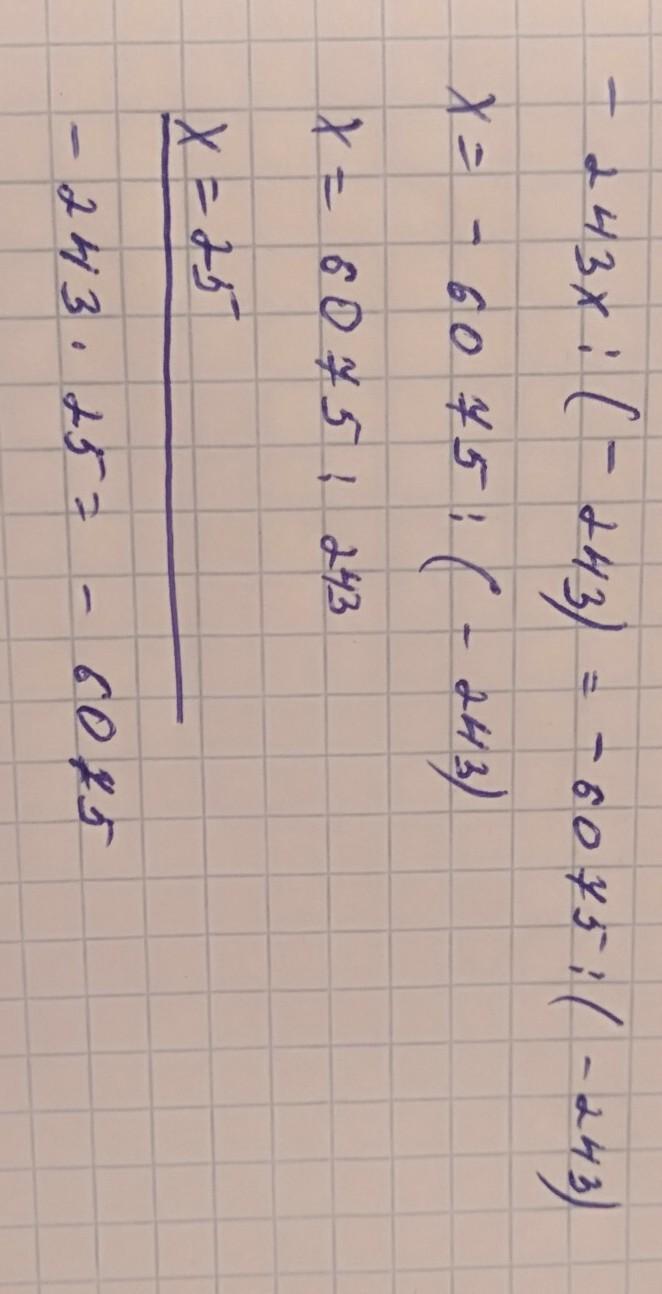 - 243x : (- 243) = - 6075 : (- 243)
x = - 6075 : (- 243)
x = 6075 : 243
x = 25
- 243 · 25 = - 6075